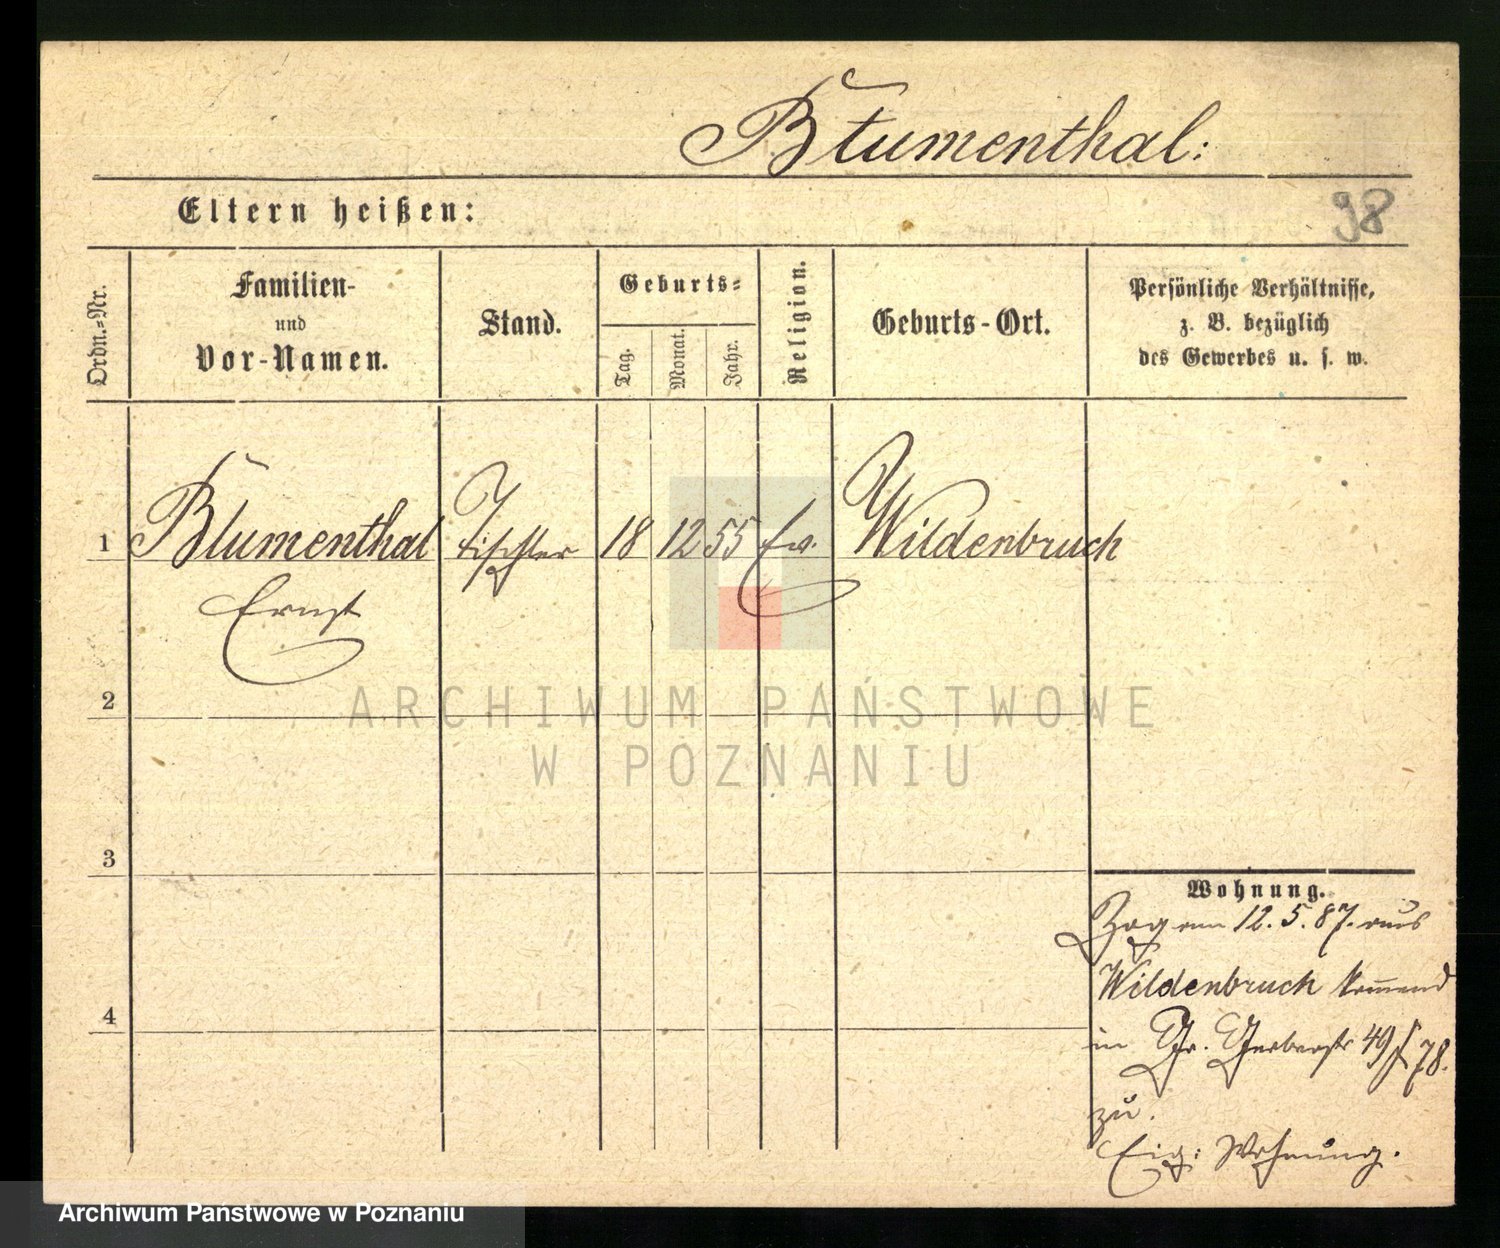 Blumenthal:
Eltern heißen:
98
Ordn.-Nr.
Familien-
und
Vor-Namen.
Stand.
Geburts-
Tag.
Monat.
Jahr.
Religion.
Geburts-Ort.
Persönliche Verhältnisse,
z. B. bezüglich
des Gewerbes u. s. w.
1 Blumenthal Tischler 18 12 55 Ev. Wildenbruch
Ernst
2
ARCHIWUM PAŃSTWOWE
W POZNANIU
3
Wohnung.
Zog am 12. 5. 87. aus
Wildenbruch kom̅end
4
in Gr. Gerberstr 49 78.
zu.
Eig: Wohnung.
Archiwum Państwowe w Poznaniu